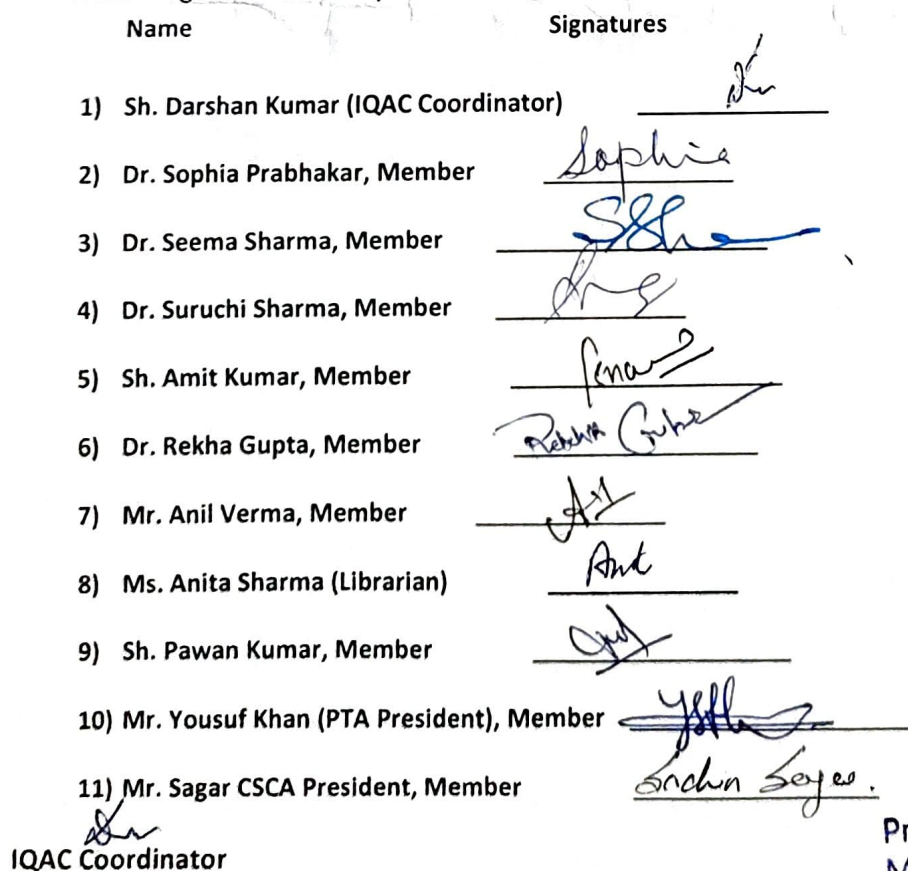 Name Signatures
1) Sh. Darshan Kumar (IQAC Coordinator)
2) Dr. Sophia Prabhakar, Member Sophia
3) Dr. Seema Sharma, Member
4) Dr. Suruchi Sharma, Member
5) Sh. Amit Kumar, Member
6) Dr. Rekha Gupta, Member Rekha Gupta
7) Mr. Anil Verma, Member
8) Ms. Anita Sharma (Librarian)
9) Sh. Pawan Kumar, Member
10) Mr. Yousuf Khan (PTA President), Member
11) Mr. Sagar CSCA President, Member
IQAC Coordinator